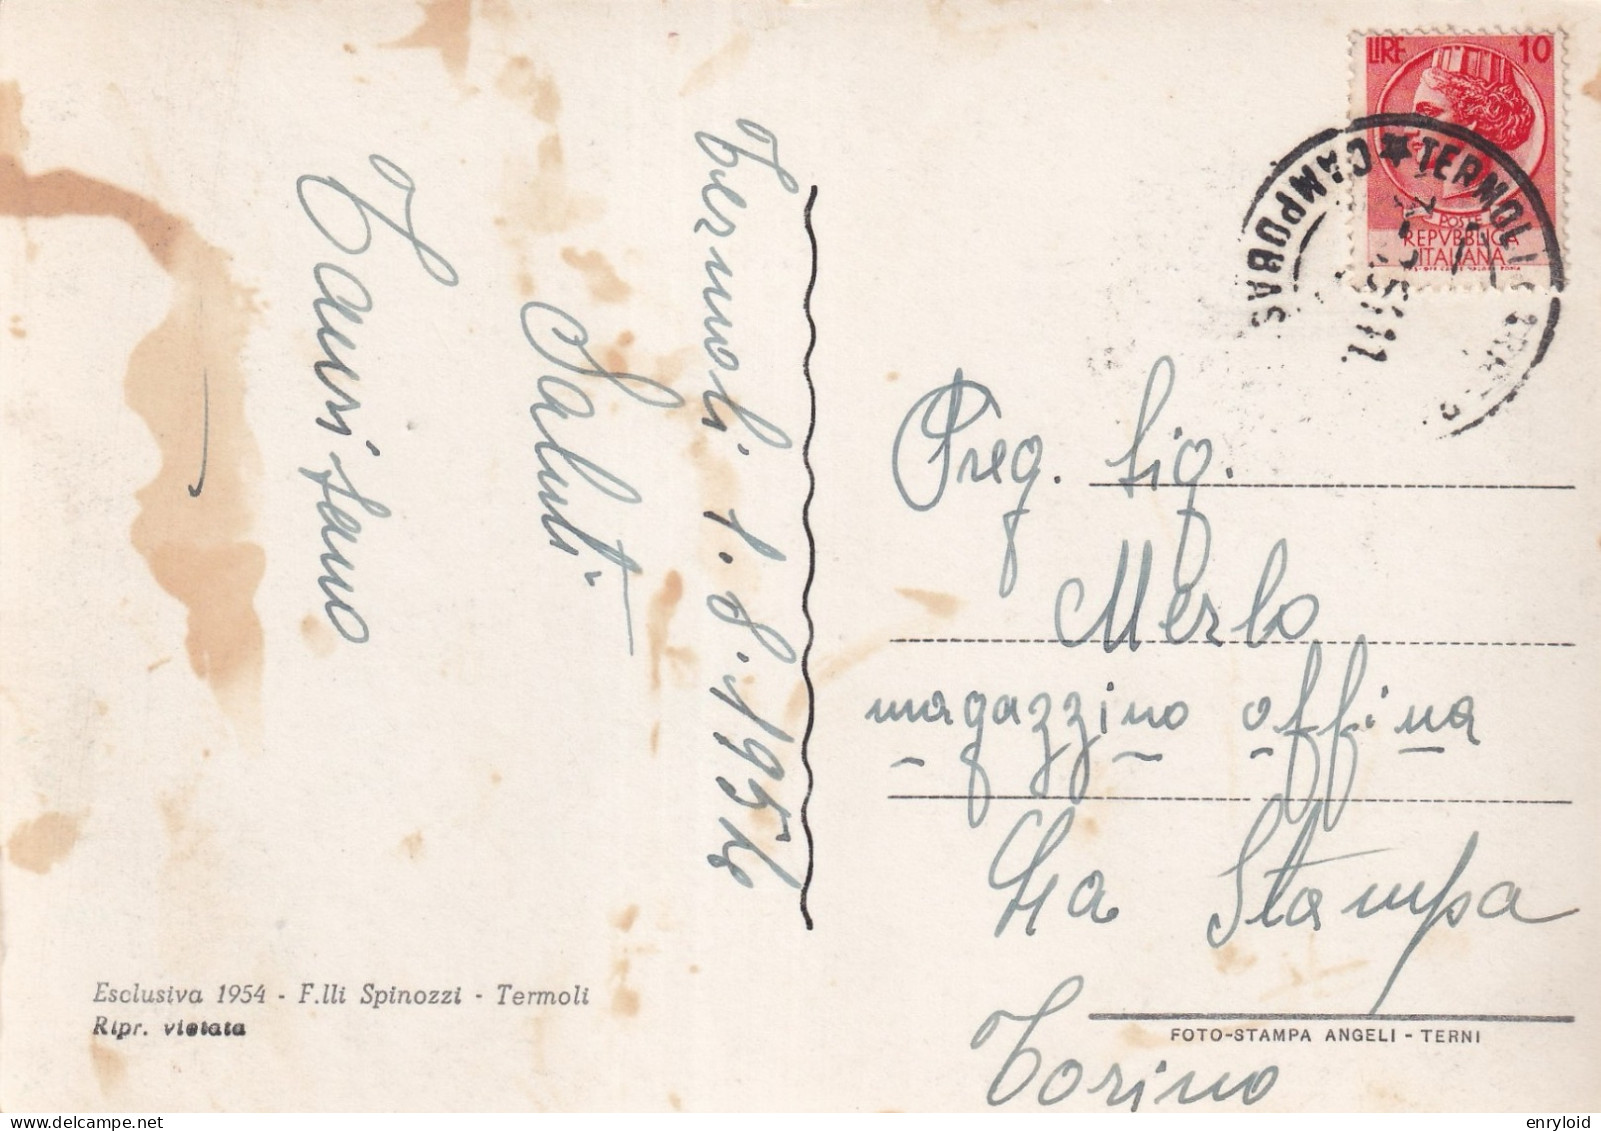 Termoli. 1.8.1954
Saluti
Esclusiva 1954 - F.lli Spinozzi - Termoli
Ripr. vietata
LIRE 10
POSTE
REPVBBLICA
ITALIANA
TERMOLI
CAMPOBAS
Preg. Sig.
Merlo
magazzino offina
La Stampa
Torino
FOTO-STAMPA ANGELI - TERNI
enryloid
delcampe.net